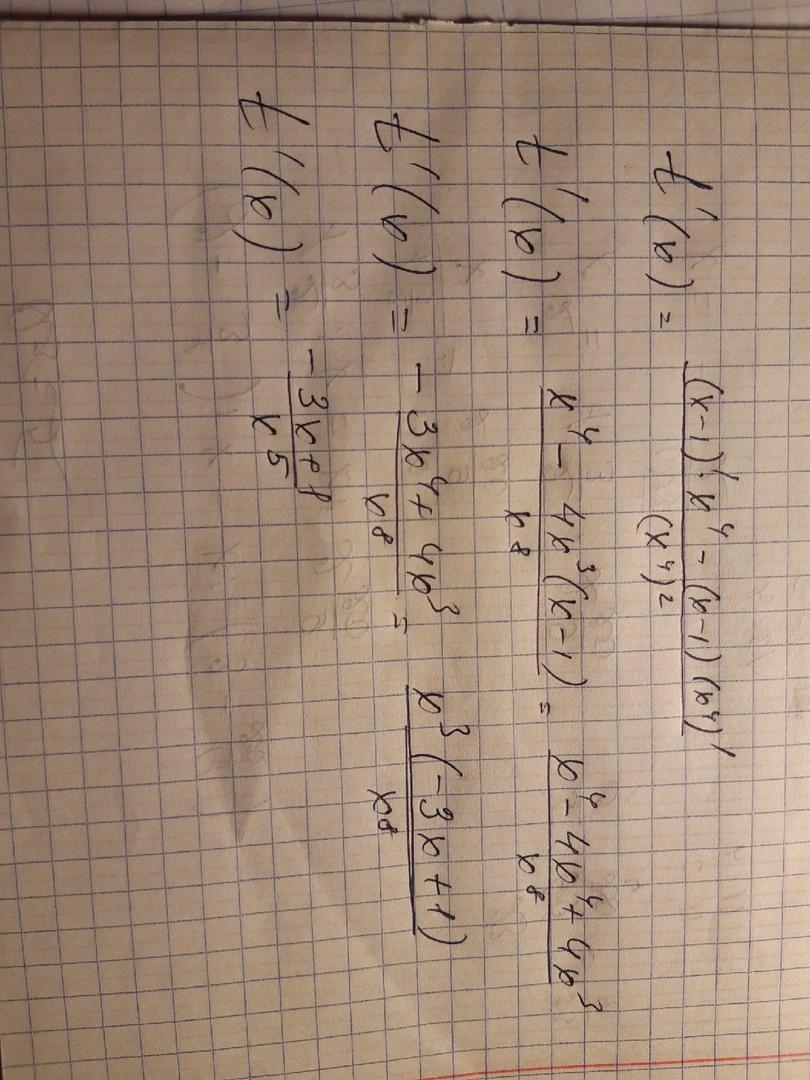 t'(x) = ((x-1)' x⁴ - (x-1)(x⁴)') / (x⁴)²
t'(x) = (x⁴ - 4x³(x-1)) / x⁸ = (x⁴ - 4x⁴ + 4x³) / x⁸
t'(x) = (-3x⁴ + 4x³) / x⁸ = (x³(-3x+1)) / x⁸
t'(x) = (-3x+1) / x⁵